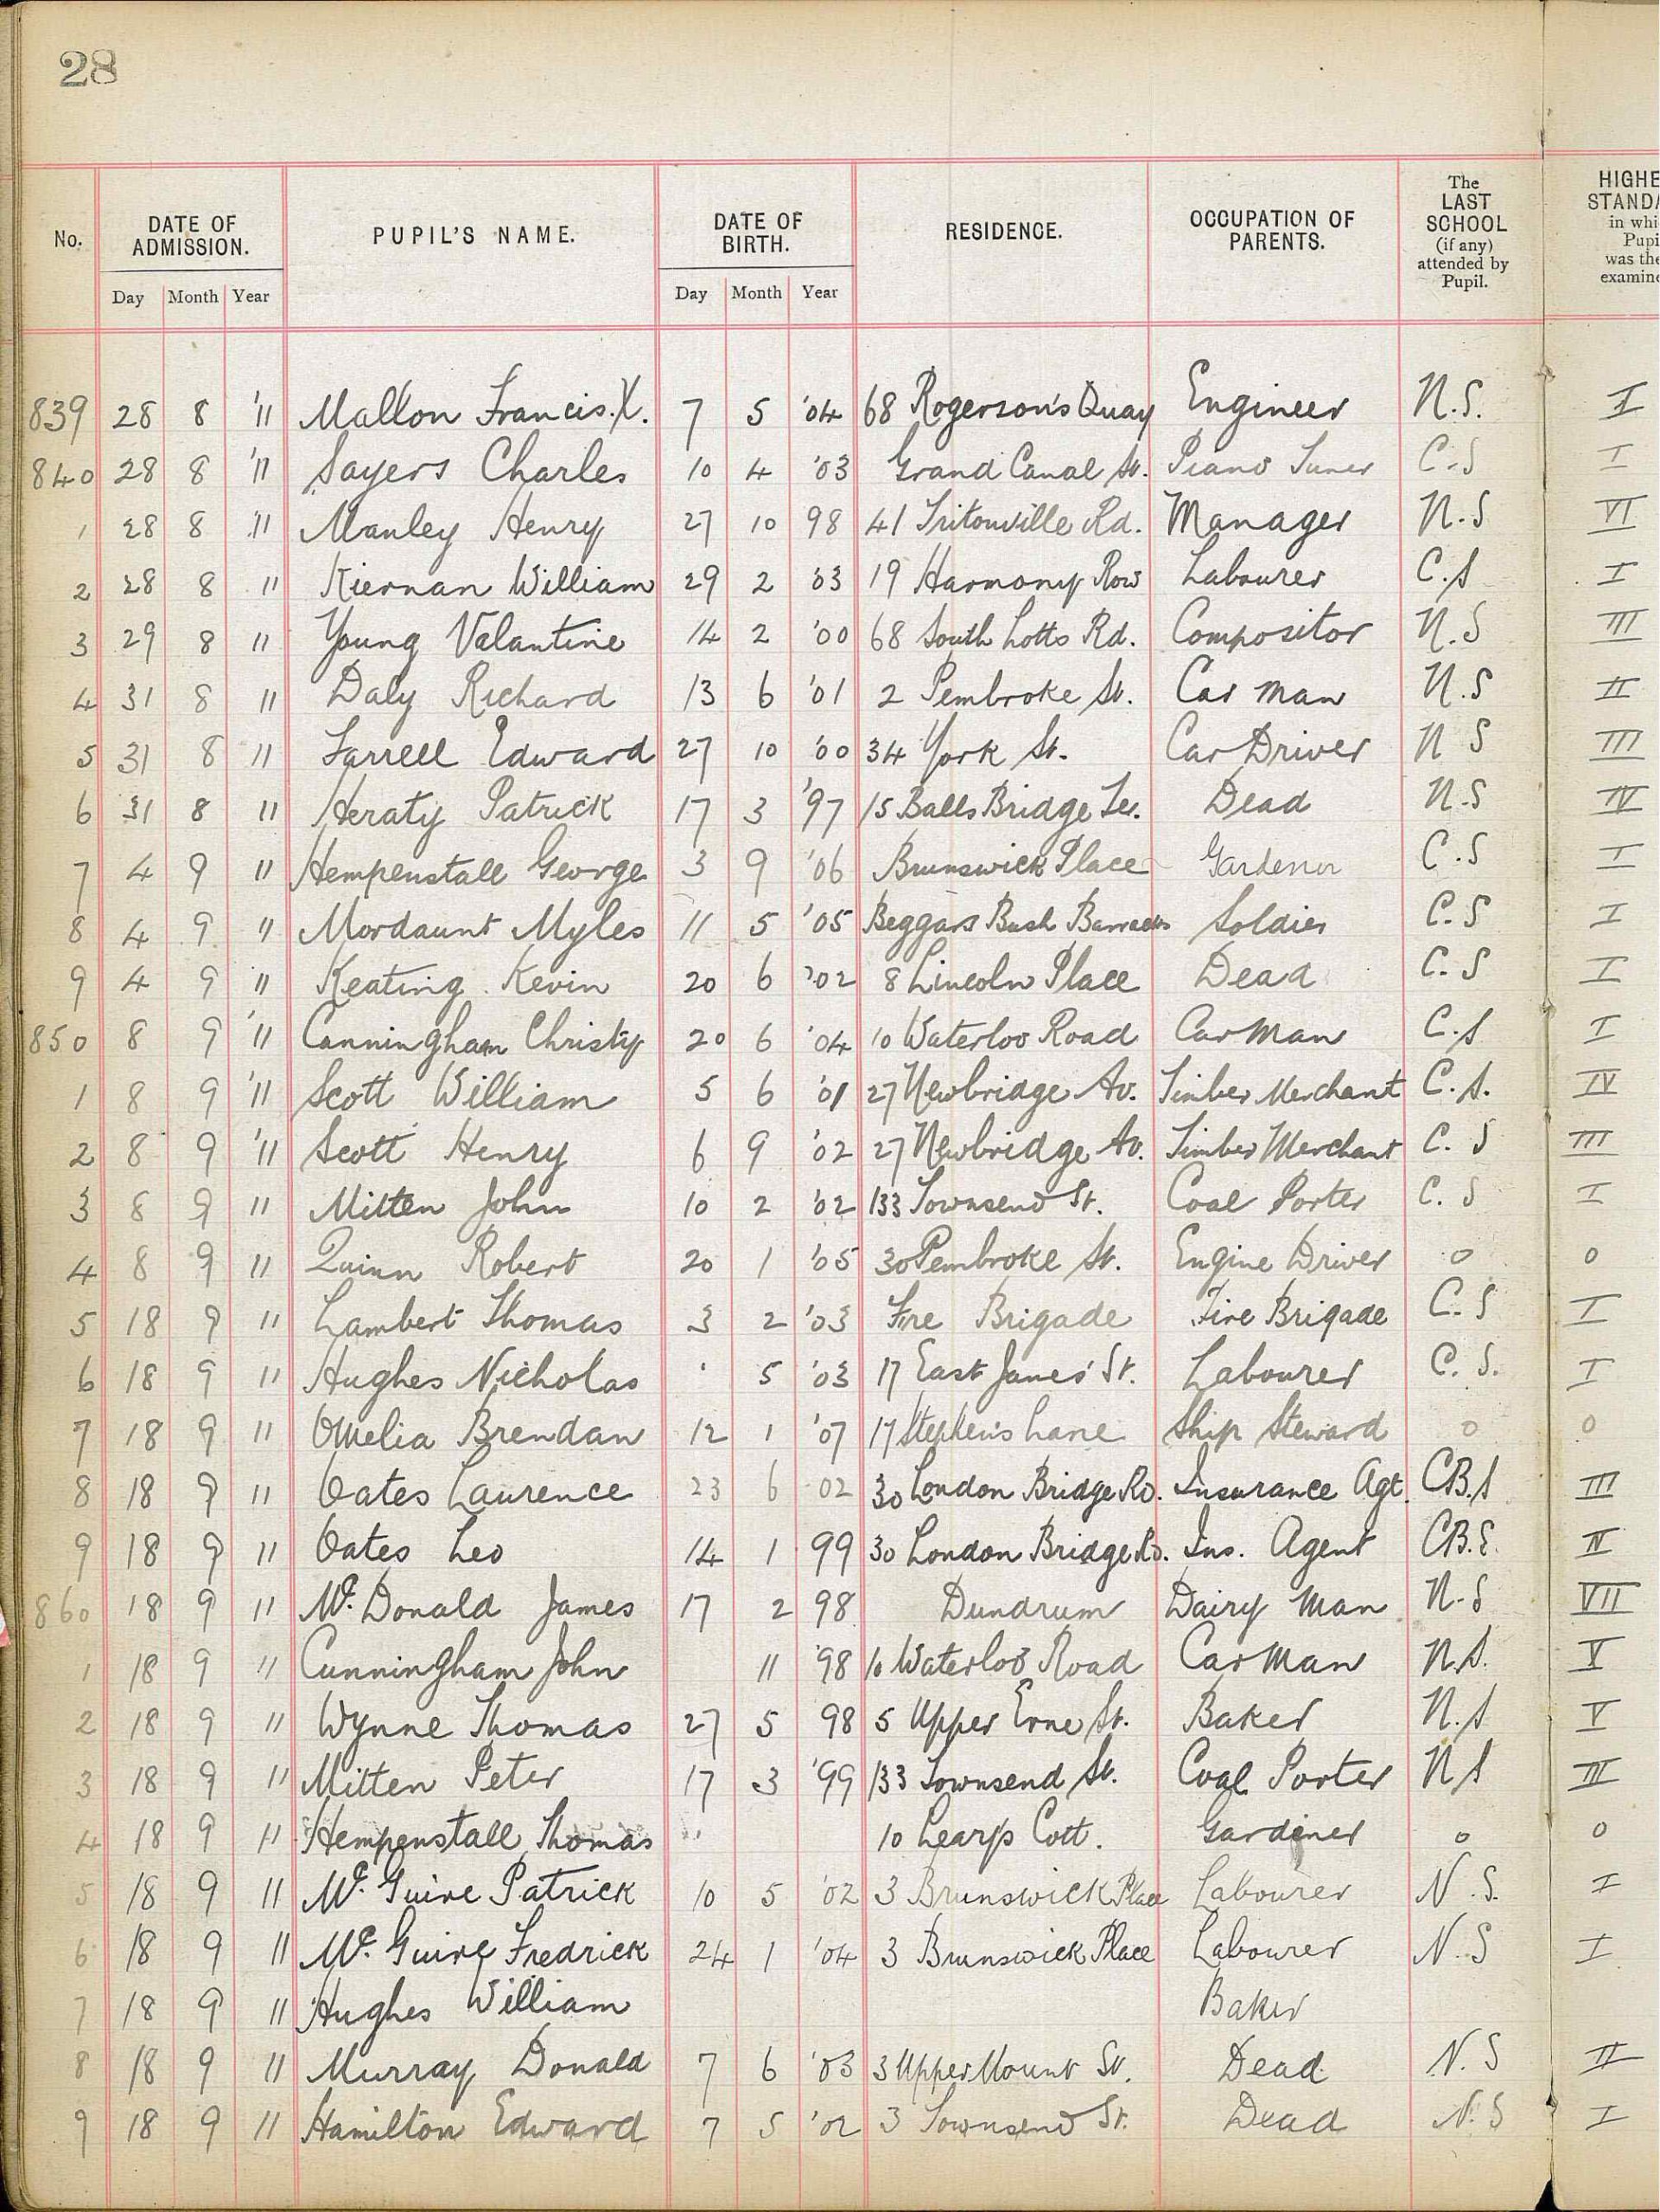 28
No. DATE OF ADMISSION. PUPIL'S NAME. DATE OF BIRTH. RESIDENCE. OCCUPATION OF PARENTS. The LAST SCHOOL (if any) attended by Pupil. HIGHE STANDA in whi Pupi was the examine
Day Month Year Day Month Year
839 28 8 '11 Mallon Francis. X. 7 5 '04 68 Rogerson's Quay Engineer N.S. I
840 28 8 '11 Sayers Charles 10 4 '03 Grand Canal St. Piano Tuner C.S I
1 28 8 '11 Manley Henry 27 10 98 41 Tritonville Rd. Manager N.S VI
2 28 8 11 Kiernan William 29 2 03 19 Harmony Row Labourer C.S I
3 29 8 11 Young Valantine 14 2 '00 68 South Lotts Rd. Compositor N.S III
4 31 8 11 Daly Richard 13 6 '01 2 Pembroke St. Car man N.S II
5 31 8 11 Farrell Edward 27 10 '00 34 York St. Car Driver N S III
6 31 8 11 Heraty Patrick 17 3 '97 15 Balls Bridge Ter. Dead N.S IV
7 4 9 11 Hempenstall George 3 9 '06 Brunswick Place Gardener C.S I
8 4 9 11 Mordaunt Myles 11 5 '05 Beggars Bush Barracks Soldier C.S I
9 4 9 11 Keating Kevin 20 6 '02 8 Lincoln Place Dead C.S I
850 8 9 '11 Cunningham Christy 20 6 '04 10 Waterloo Road Car Man C.S I
1 8 9 '11 Scott William 5 6 '01 27 Newbridge Av. Timber Merchant C.S. IV
2 8 9 '11 Scott Henry 6 9 '02 27 Newbridge Av. Timber Merchant C. S III
3 8 9 11 Mitten John 10 2 '02 133 Townsend St. Coal Porter C. S I
4 8 9 11 Quinn Robert 20 1 '05 30 Pembroke St. Engine Driver 0 0
5 18 9 11 Lambert Thomas 3 2 '03 Fire Brigade Fire Brigade C.S I
6 18 9 11 Hughes Nicholas 5 '03 17 East James' St. Labourer C. S. I
7 18 9 11 OMelia Brendan 12 1 '07 17 Stephen's Lane Ship Steward 0 0
8 18 9 11 Oates Laurence 23 6 02 30 London Bridge Rd. Insurance Agt. CB.S III
9 18 9 11 Oates Leo 14 1 99 30 London Bridge Rd. Ins. Agent CB.S.
860 18 9 11 Mc. Donald James 17 2 98 Dundrum Dairy Man N.S VII
1 18 9 11 Cunningham John 11 '98 10 Waterloo Road Car Man N.S. V
2 18 9 11 Wynne Thomas 27 5 98 5 Upper Erne St. Baker N.S V
3 18 9 11 Mitten Peter 17 3 '99 133 Townsend St. Coal Porter N S III
4 18 9 11 Hempenstall Thomas 10 Leary's Cott. Gardener 0 0
5 18 9 11 Mc. Guire Patrick 10 5 '02 3 Brunswick Place Labourer N.S. I
6 18 9 11 Mc. Guire Fredrick 24 1 '04 3 Brunswick Place Labourer N.S I
7 18 9 11 Hughes William Baker
8 18 9 11 Murray Donald 7 6 '03 3 Upper Mount St. Dead N.S II
9 18 9 11 Hamilton Edward 7 5 '02 3 Townsend St. Dead N.S I